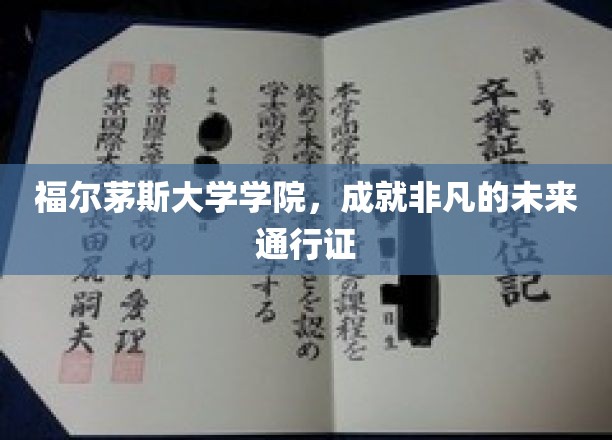 福尔茅斯大学学院，成就非凡的未来
通行证
第 号
卒業証 学位記
本学商学部 定の課程を
日生
修めて本学 ことを認め
学士(商学)の する
平成
東京国際大学 田村愛理
東京国際大 長田尻嗣夫